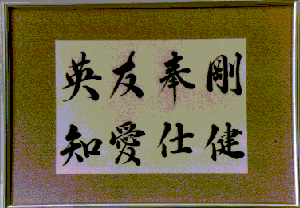 剛健
奉仕
友愛
英知